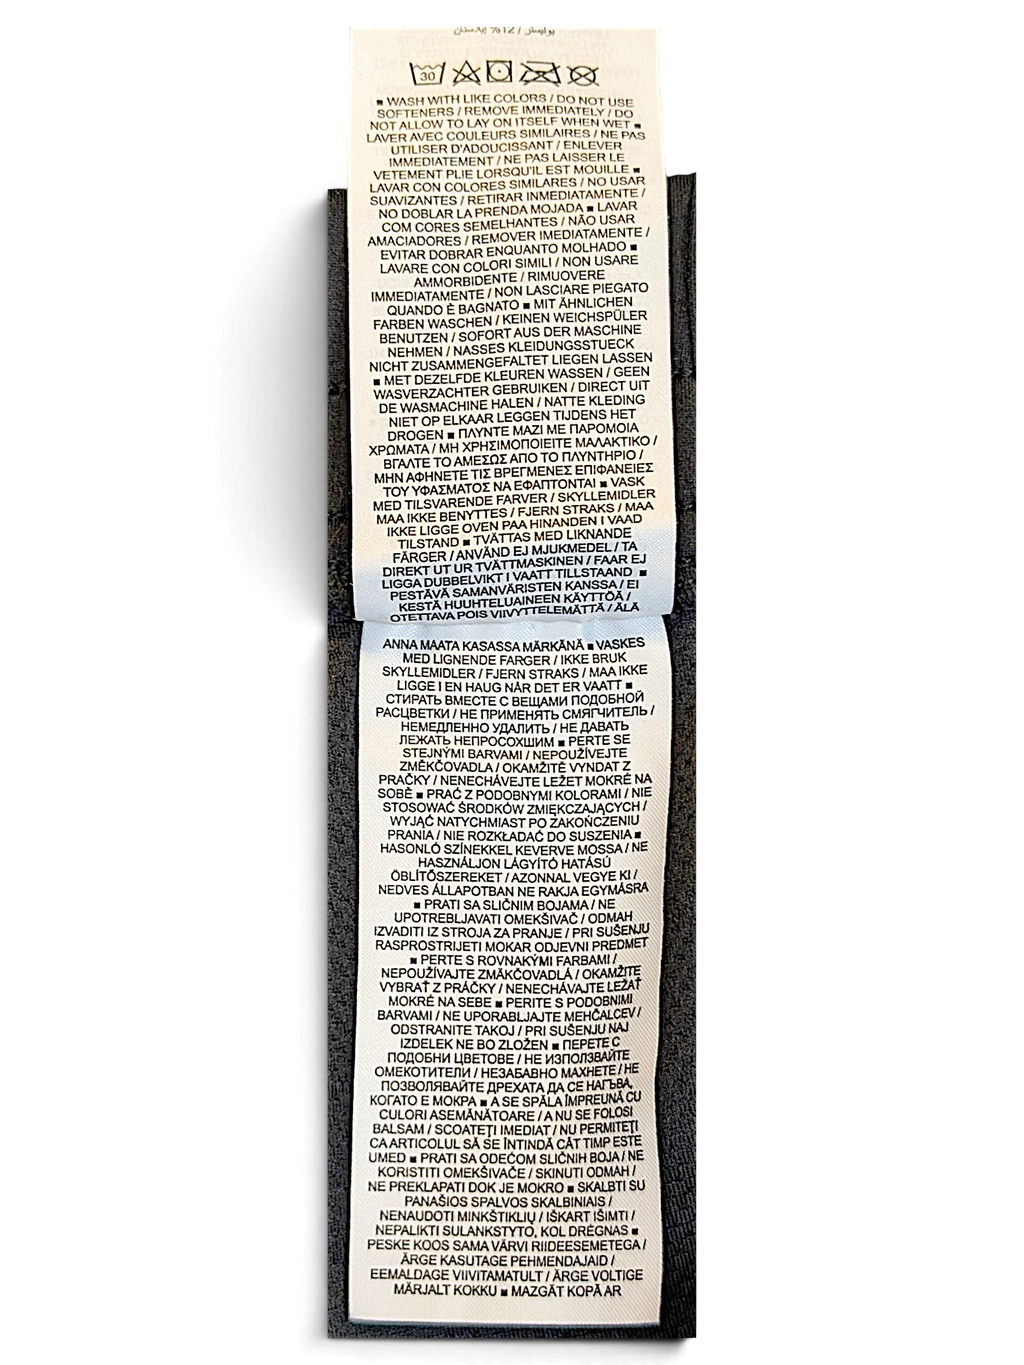 بوليستر / 12% إيلاستان
30
■ WASH WITH LIKE COLORS / DO NOT USE
SOFTENERS / REMOVE IMMEDIATELY / DO
NOT ALLOW TO LAY ON ITSELF WHEN WET ■
LAVER AVEC COULEURS SIMILAIRES / NE PAS
UTILISER D'ADOUCISSANT / ENLEVER
IMMEDIATEMENT / NE PAS LAISSER LE
VETEMENT PLIE LORSQU'IL EST MOUILLE ■
LAVAR CON COLORES SIMILARES / NO USAR
SUAVIZANTES / RETIRAR INMEDIATAMENTE /
NO DOBLAR LA PRENDA MOJADA ■ LAVAR
COM CORES SEMELHANTES / NÃO USAR
AMACIADORES / REMOVER IMEDIATAMENTE /
EVITAR DOBRAR ENQUANTO MOLHADO ■
LAVARE CON COLORI SIMILI / NON USARE
AMMORBIDENTE / RIMUOVERE
IMMEDIATAMENTE / NON LASCIARE PIEGATO
QUANDO È BAGNATO ■ MIT ÄHNLICHEN
FARBEN WASCHEN / KEINEN WEICHSPÜLER
BENUTZEN / SOFORT AUS DER MASCHINE
NEHMEN / NASSES KLEIDUNGSSTUECK
NICHT ZUSAMMENGEFALTET LIEGEN LASSEN
■ MET DEZELFDE KLEUREN WASSEN / GEEN
WASVERZACHTER GEBRUIKEN / DIRECT UIT
DE WASMACHINE HALEN / NATTE KLEDING
NIET OP ELKAAR LEGGEN TIJDENS HET
DROGEN ■ ΠΛΥΝΤΕ ΜΑΖΙ ΜΕ ΠΑΡΟΜΟΙΑ
ΧΡΩΜΑΤΑ / ΜΗ ΧΡΗΣΙΜΟΠΟΙΕΙΤΕ ΜΑΛΑΚΤΙΚΟ /
ΒΓΑΛΤΕ ΤΟ ΑΜΕΣΩΣ ΑΠΟ ΤΟ ΠΛΥΝΤΗΡΙΟ /
ΜΗΝ ΑΦΗΝΕΤΕ ΤΙΣ ΒΡΕΓΜΕΝΕΣ ΕΠΙΦΑΝΕΙΕΣ
ΤΟΥ ΥΦΑΣΜΑΤΟΣ ΝΑ ΕΦΑΠΤΟΝΤΑΙ ■ VASK
MED TILSVARENDE FARVER / SKYLLEMIDLER
MAA IKKE BENYTTES / FJERN STRAKS / MAA
IKKE LIGGE OVEN PAA HINANDEN I VAAD
TILSTAND ■ TVÄTTAS MED LIKNANDE
FÄRGER / ANVÄND EJ MJUKMEDEL / TA
DIREKT UT UR TVÄTTMASKINEN / FAAR EJ
LIGGA DUBBELVIKT I VAATT TILLSTAAND ■
PESTÄVÄ SAMANVÄRISTEN KANSSA / EI
KESTÄ HUUHTELUAINEEN KÄYTTÖÄ /
OTETTAVA POIS VIIVYTTELEMÄTTÄ / ÄLÄ
ANNA MAATA KASASSA MÄRKÄNÄ ■ VASKES
MED LIGNENDE FARGER / IKKE BRUK
SKYLLEMIDLER / FJERN STRAKS / MAA IKKE
LIGGE I EN HAUG NÅR DET ER VAATT ■
СТИРАТЬ ВМЕСТЕ С ВЕЩАМИ ПОДОБНОЙ
РАСЦВЕТКИ / НЕ ПРИМЕНЯТЬ СМЯГЧИТЕЛЬ /
НЕМЕДЛЕННО УДАЛИТЬ / НЕ ДАВАТЬ
ЛЕЖАТЬ НЕПРОСОХШИМ ■ PERTE SE
STEJNÝMI BARVAMI / NEPOUŽÍVEJTE
ZMĚKČOVADLA / OKAMŽITĚ VYNDAT Z
PRAČKY / NENECHÁVEJTE LEŽET MOKRÉ NA
SOBĚ ■ PRAĆ Z PODOBNYMI KOLORAMI / NIE
STOSOWAĆ ŚRODKÓW ZMIĘKCZAJĄCYCH /
WYJĄĆ NATYCHMIAST PO ZAKOŃCZENIU
PRANIA / NIE ROZKŁADAĆ DO SUSZENIA ■
HASONLÓ SZÍNEKKEL KEVERVE MOSSA / NE
HASZNÁLJON LÁGYÍTÓ HATÁSÚ
ÖBLÍTŐSZEREKET / AZONNAL VEGYE KI /
NEDVES ÁLLAPOTBAN NE RAKJA EGYMÁSRA
■ PRATI SA SLIČNIM BOJAMA / NE
UPOTREBLJAVATI OMEKŠIVAČ / ODMAH
IZVADITI IZ STROJA ZA PRANJE / PRI SUŠENJU
RASPROSTRIJETI MOKAR ODJEVNI PREDMET
■ PERTE S ROVNAKÝMI FARBAMI /
NEPOUŽÍVAJTE ZMÄKČOVADLÁ / OKAMŽITE
VYBRAŤ Z PRÁČKY / NENECHÁVAJTE LEŽAŤ
MOKRÉ NA SEBE ■ PERITE S PODOBNIMI
BARVAMI / NE UPORABLJAJTE MEHČALCEV /
ODSTRANITE TAKOJ / PRI SUŠENJU NAJ
IZDELEK NE BO ZLOŽEN ■ ПЕРЕТЕ С
ПОДОБНИ ЦВЕТОВЕ / НЕ ИЗПОЛЗВАЙТЕ
ОМЕКОТИТЕЛИ / НЕЗАБАВНО МАХНЕТЕ / НЕ
ПОЗВОЛЯВАЙТЕ ДРЕХАТА ДА СЕ НАГЪВА,
КОГАТО Е МОКРА ■ A SE SPĂLA ÎMPREUNĂ CU
CULORI ASEMĂNĂTOARE / A NU SE FOLOSI
BALSAM / SCOATEŢI IMEDIAT / NU PERMITEŢI
CA ARTICOLUL SĂ SE ÎNTINDĂ CÂT TIMP ESTE
UMED ■ PRATI SA ODEĆOM SLIČNIH BOJA / NE
KORISTITI OMEKŠIVAČE / SKINUTI ODMAH /
NE PREKLAPATI DOK JE MOKRO ■ SKALBTI SU
PANAŠIOS SPALVOS SKALBINIAIS /
NENAUDOTI MINKŠTIKLIŲ / IŠKART IŠIMTI /
NEPALIKTI SULANKSTYTO, KOL DRĖGNAS ■
PESKE KOOS SAMA VÄRVI RIIDEESEMETEGA /
ÄRGE KASUTAGE PEHMENDAJAID /
EEMALDAGE VIIVITAMATULT / ÄRGE VOLTIGE
MÄRJALT KOKKU ■ MAZGĀT KOPĀ AR